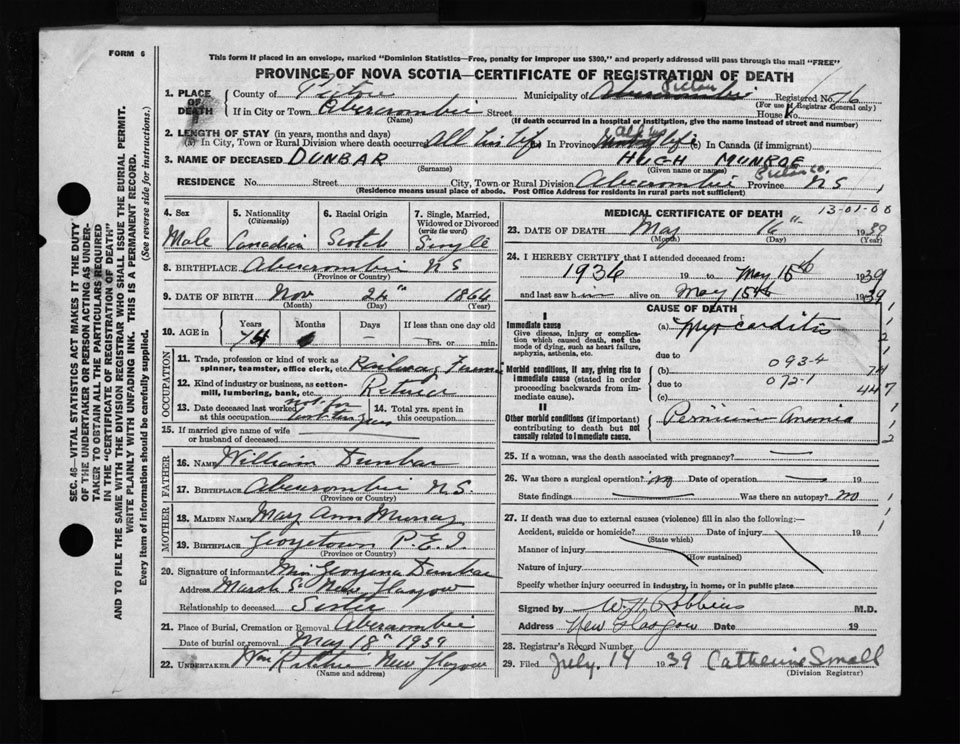 FORM 6
This form if placed in an envelope, marked "Dominion Statistics—Free, penalty for improper use $300," and properly addressed will pass through the mail "FREE"
PROVINCE OF NOVA SCOTIA—CERTIFICATE OF REGISTRATION OF DEATH
1. PLACE OF DEATH County of Pictou Municipality of Pictou Registered No. 76
(For use of Registrar General only)
If in City or Town Abercrombie Street House No.
(Name) (If death occurred in a hospital or institution, give the name instead of street and number)
2. LENGTH OF STAY (in years, months and days)
(a) In City, Town or Rural Division where death occurred All his life (b) In Province All his life (c) In Canada (if immigrant)
3. NAME OF DECEASED DUNBAR HUGH MUNROE
(Surname) (Given name or names)
RESIDENCE No. Street City, Town or Rural Division Abercrombie Pictou Co. Province N S
(Residence means usual place of abode. Post Office Address for residents in rural parts not sufficient)
4. Sex Male
5. Nationality (Citizenship) Canadian
6. Racial Origin Scotch
7. Single, Married, Widowed or Divorced (write the word) Single
8. BIRTHPLACE Abercrombie N S
(Province or Country)
9. DATE OF BIRTH Nov 24th 1864
(Month) (Day) (Year)
10. AGE in Years Months Days If less than one day
74 6 — hrs. or min.
OCCUPATION
11. Trade, profession or kind of work as spinner, teamster, office clerk, etc. Railway
12. Kind of industry or business, as cotton-mill, lumbering, bank, etc. Retired
13. Date deceased last worked at this occupation not for
14. Total yrs. spent in this occupation
15. If married give name of wife or husband of deceased
FATHER
16. NAME William Dunbar
17. BIRTHPLACE Abercrombie N.S.
(Province or Country)
MOTHER
18. MAIDEN NAME May Ann Murray
19. BIRTHPLACE Georgetown P.E.I.
(Province or Country)
20. Signature of informant Miss Georgina Dunbar
Address Marsh St New Glasgow
Relationship to deceased Sister
21. Place of Burial, Cremation or Removal Abercrombie
Date of burial or removal May 18th 1939
22. UNDERTAKER Wm Ritchie New Glasgow
(Name and address)
MEDICAL CERTIFICATE OF DEATH 13-01-00
23. DATE OF DEATH May 16th 1939
(Month) (Day) (Year)
24. I HEREBY CERTIFY that I attended deceased from:
1936 19 to May 15th 1939
and last saw him alive on May 15th 1939
CAUSE OF DEATH
I
Immediate cause (a) Myocarditis
Give disease, injury or complication which caused death, not the mode of dying, such as heart failure, asphyxia, asthenia, etc.
due to 093-4
Morbid conditions, if any, giving rise to immediate cause (stated in order proceeding backwards from immediate cause).
(b) 74
due to 072-1 447
(c)
II
Other morbid conditions (if important) contributing to death but not causally related to immediate cause. Pernicious Anemia
25. If a woman, was the death associated with pregnancy?
26. Was there a surgical operation? no Date of operation 19
State findings Was there an autopsy? no
27. If death was due to external causes (violence) fill in also the following:—
Accident, suicide or homicide? Date of injury 19
(State which)
Manner of injury
(How sustained)
Nature of injury
Specify whether injury occurred in industry, in home, or in public place
Signed by W H Robbins M.D.
Address New Glasgow Date 19
28. Registrar's Record Number
29. Filed July, 14 1939 Catherine Small
(Division Registrar)
SEC. 46—VITAL STATISTICS ACT MAKES IT THE DUTY
OF THE UNDERTAKER OR PERSON ACTING AS UNDER-
TAKER TO OBTAIN ALL THE PARTICULARS REQUIRED
IN THE "CERTIFICATE OF REGISTRATION OF DEATH"
AND TO FILE THE SAME WITH THE DIVISION REGISTRAR WHO SHALL ISSUE THE BURIAL PERMIT.
WRITE PLAINLY WITH UNFADING INK. THIS IS A PERMANENT RECORD.
Every item of information should be carefully supplied. (See reverse side for instructions.)